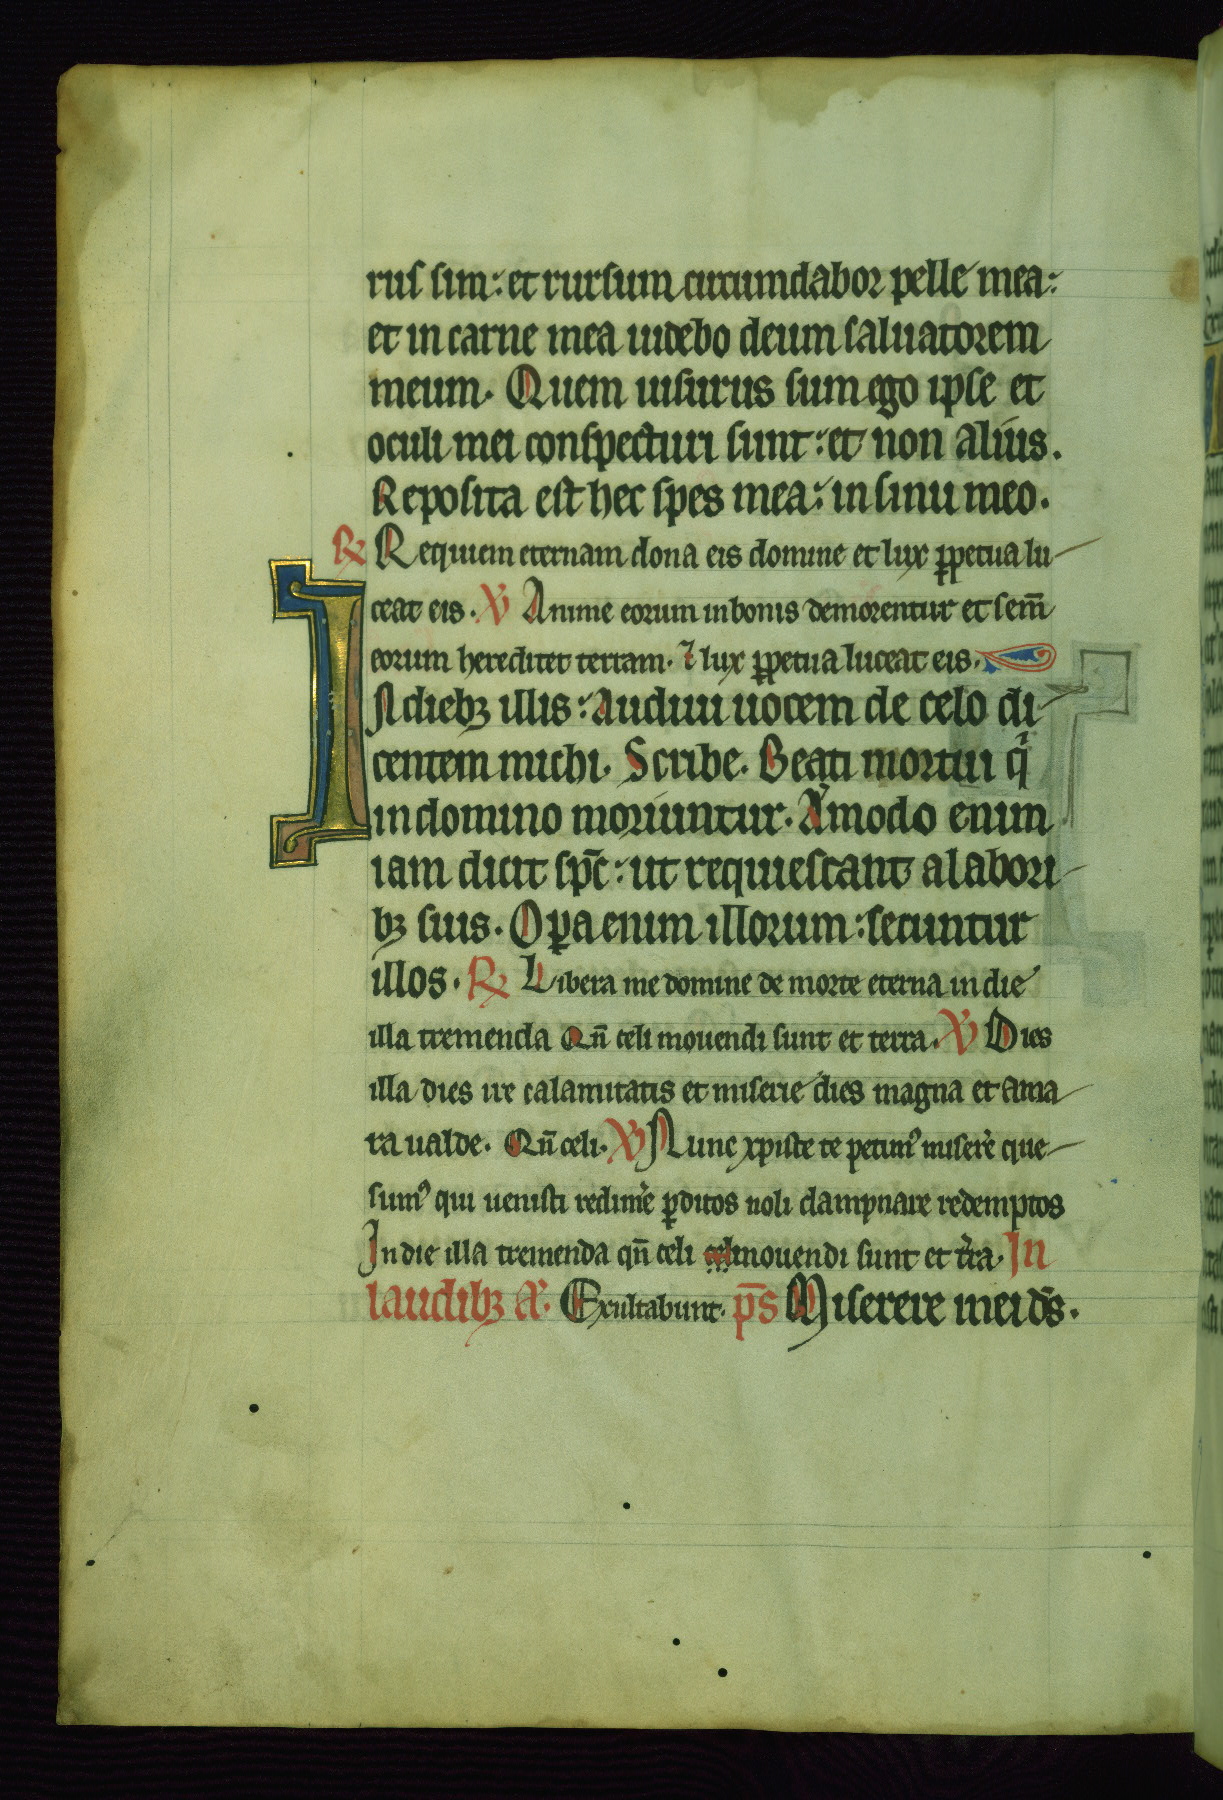 rus sim: et rursum circumdabor pelle mea:
et in carne mea uidebo deum saluatorem
meum. Quem uisurus sum ego ipse et
oculi mei conspecturi sunt: et non alius.
Reposita est hec spes mea: in sinu meo.
℟ Requiem eternam dona eis domine et lux ꝑpetua lu
ceat eis. ℣ Anime eorum in bonis demorentur et sem̄
eorum hereditet terram. ⁊ lux ꝑpetua luceat eis.
IN diebꝫ illis: Audiui uocem de celo di
centem michi. Scribe. Beati mortui qͥ
in domino moriuntur. Amodo enim
iam dicit sp̄c: ut requiescant a labori
bꝫ suis. Oꝑa enim illorum: secuntur
illos. ℟ Libera me domine de morte eterna in die
illa tremenda Qn̄ celi mouendi sunt et terra. ℣ Dies
illa dies ire calamitatis et miserie dies magna et ama
ra ualde. Qn̄ celi. ℣ Nunc xpiste te petimꝰ miser̓e que
sumꝰ qui uenisti redim̓e ꝑditos noli dampnare redemptos
In die illa tremenda qn̄ celi celi mouendi sunt et t̓ra. In
laudibꝫ A̓. Exultabunt. p̄s Miserere mei ds̄.